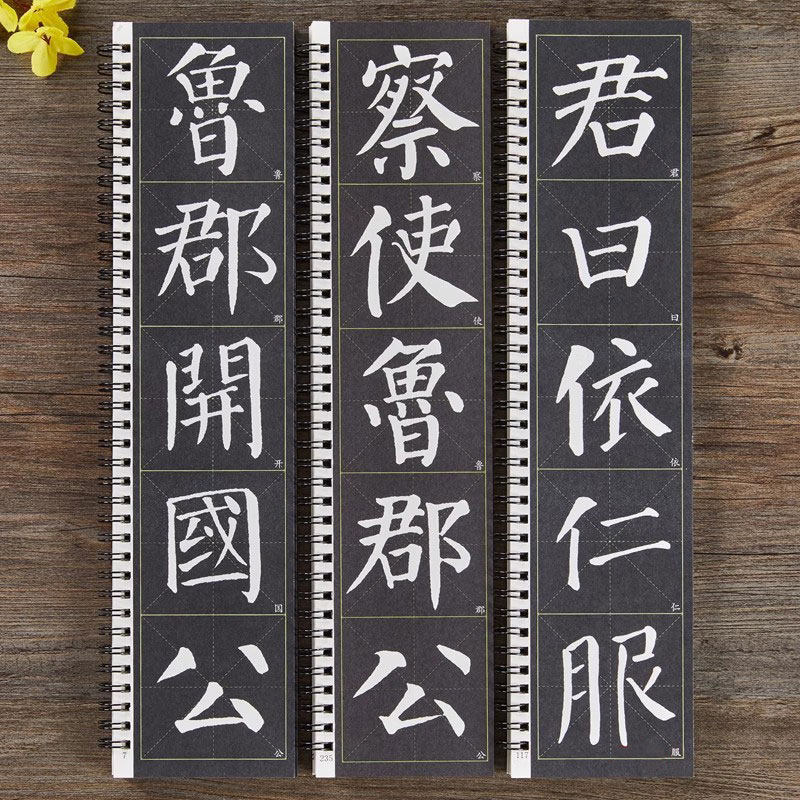 魯 鲁
郡 郡
開 开
國 国
公 公
7
察 察
使 使
魯 鲁
郡 郡
公 公
235
君 君
曰 曰
依 依
仁 仁
服 服
117